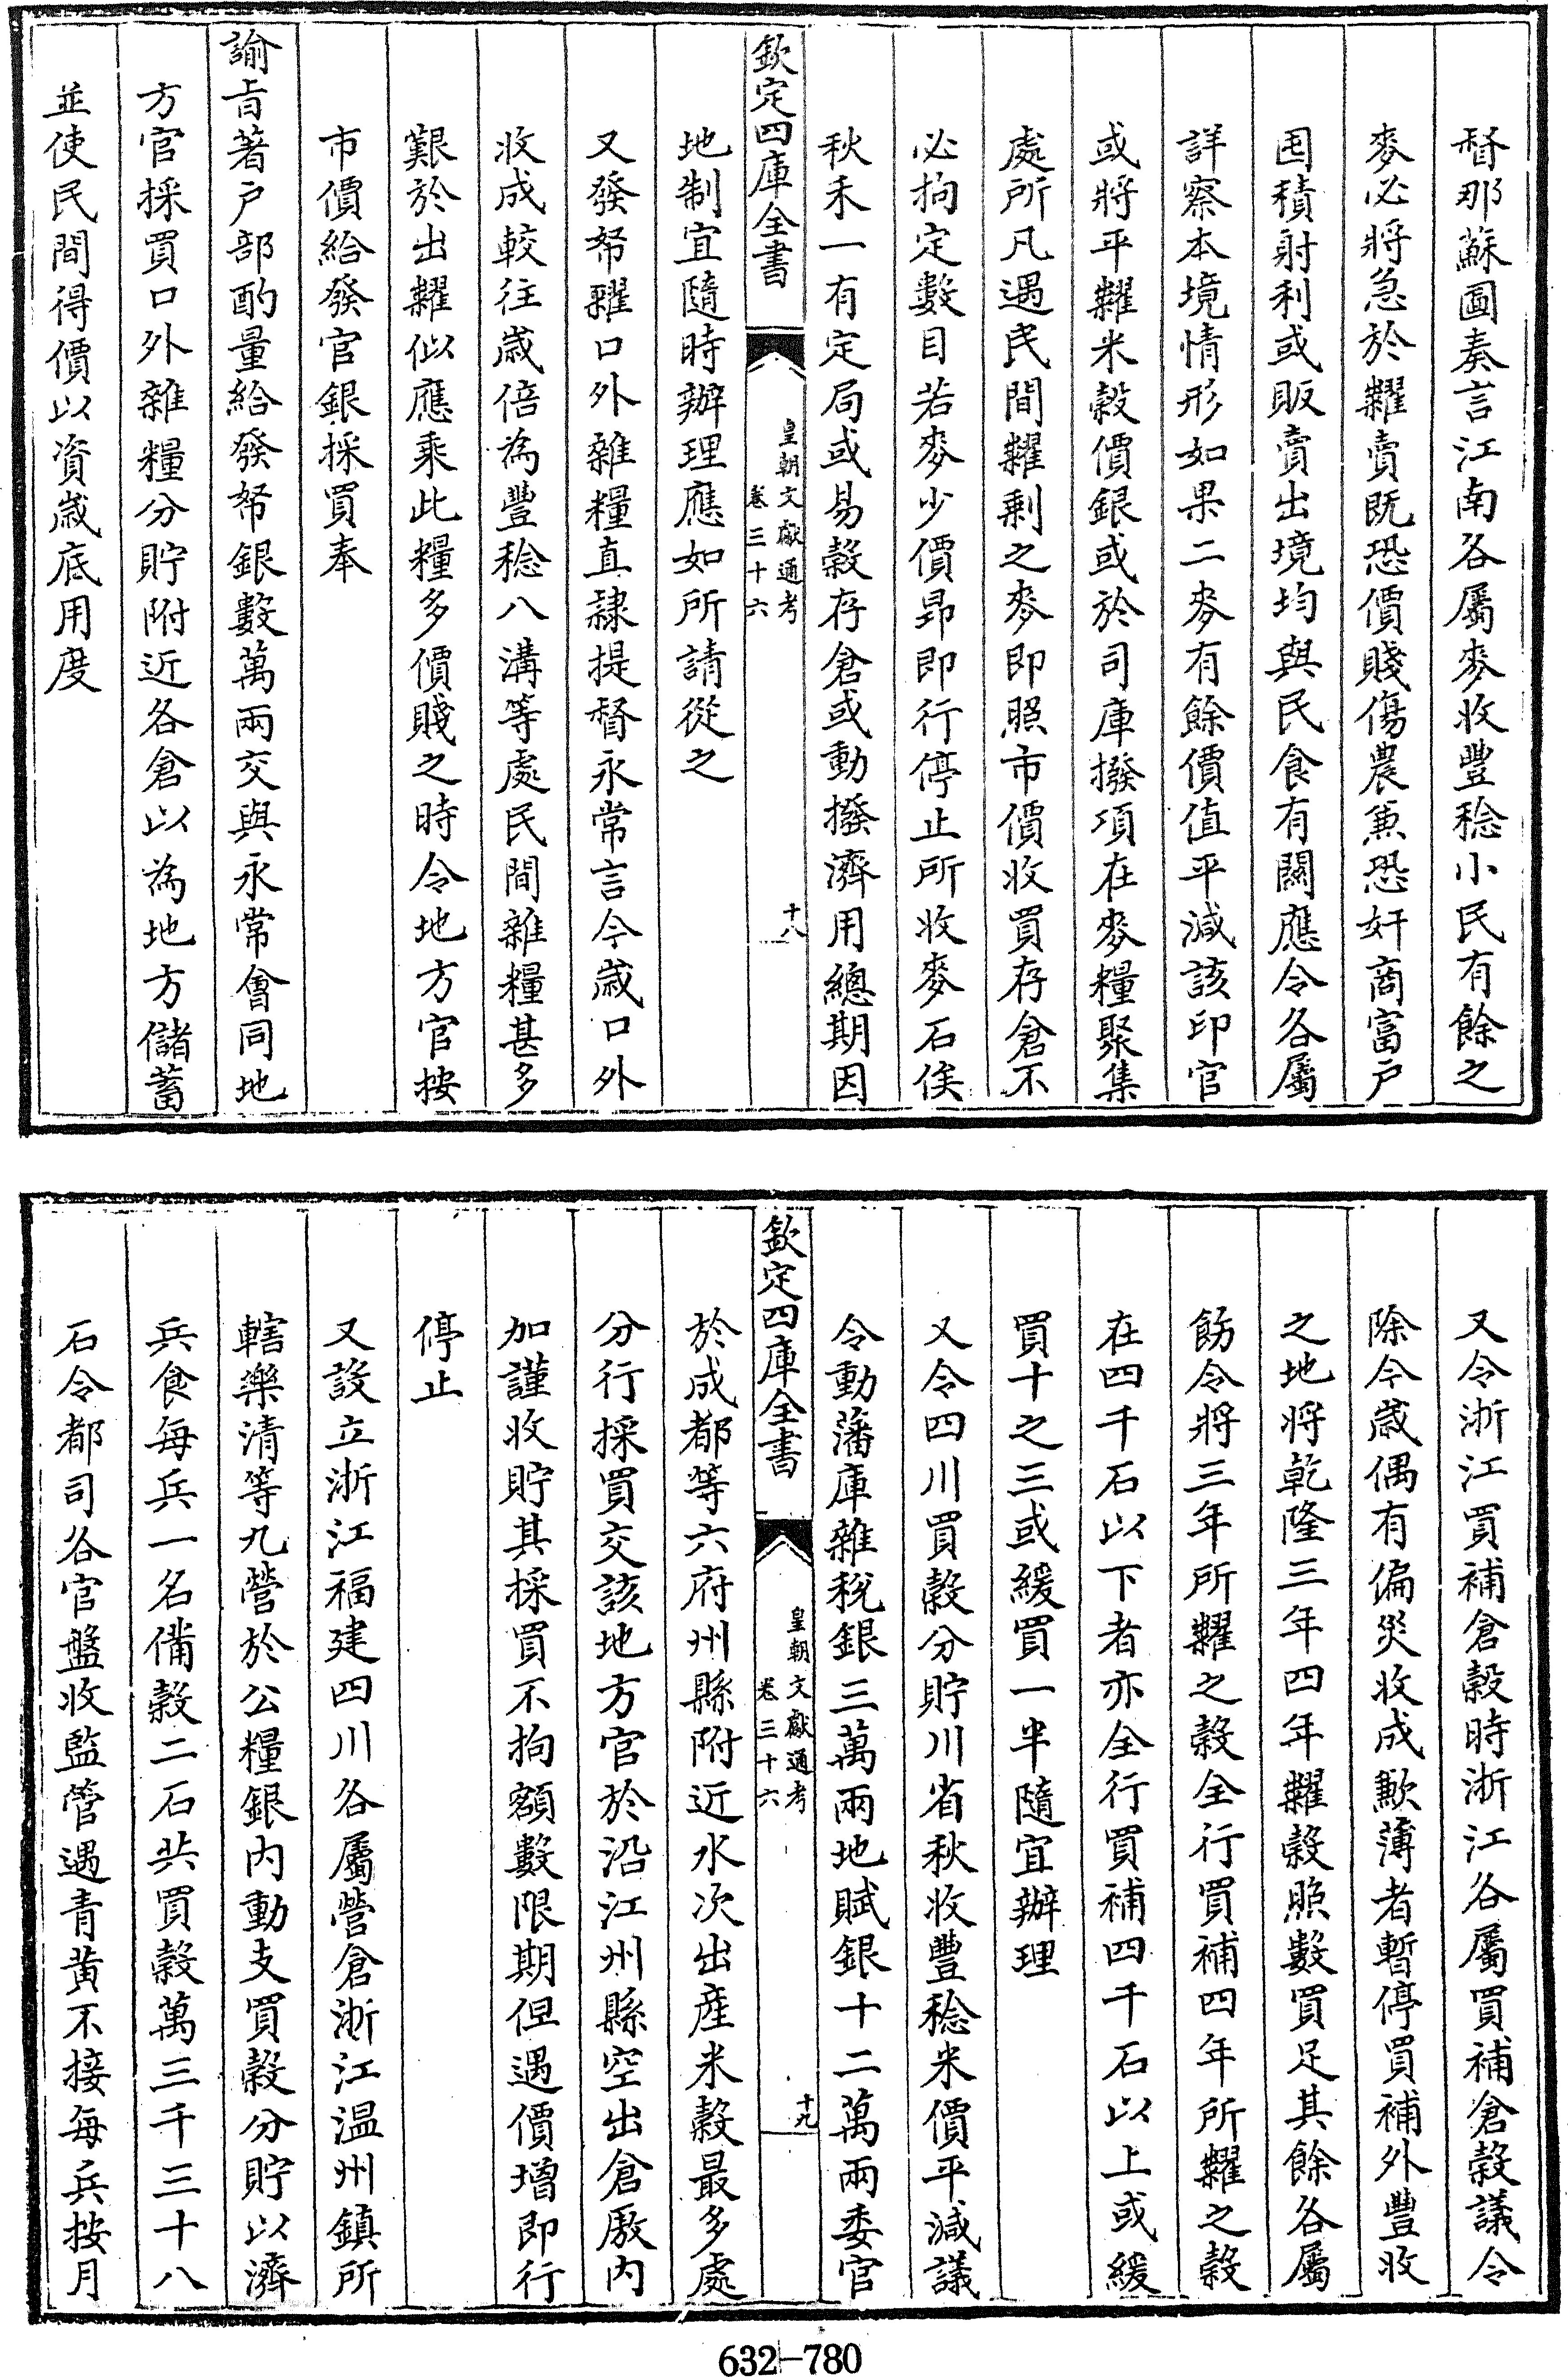 督那蘇圖奏言江南各屬麥收豐稔小民有餘之
麥必將急於糶賣既恐價賤傷農兼恐奸商富戶
囤積射利或販賣出境均與民食有關應令各屬
詳察本境情形如果二麥有餘價值平減該印官
或將平糶米穀價銀或於司庫撥項在麥糧聚集
處所凡遇民間糶剩之麥即照市價收買存倉不
必拘定數目若麥少價昻即行停止所收麥石俟
秋禾一有定局或易穀存倉或動撥濟用總期因
欽定四庫全書
皇朝文獻通考
卷三十六
十八
地制宜隨時辦理應如所請從之
又發帑糴口外雜糧直隷提督永常言今歲口外
收成較往歲倍為豐稔八溝等處民間雜糧甚多
艱於出糶似應乘此糧多價賤之時令地方官按
市價給發官銀採買奉
諭旨著戶部酌量給發帑銀數萬兩交與永常會同地
方官採買口外雜糧分貯附近各倉以為地方儲蓄
並使民間得價以資歲底用度
又令浙江買補倉穀時浙江各屬買補倉穀議令
除今歲偶有偏災收成歉薄者暫停買補外豐收
之地將乾隆三年四年糶穀照數買足其餘各屬
飭令將三年所糶之穀全行買補四年所糶之穀
在四千石以下者亦全行買補四千石以上或緩
買十之三或緩買一半隨宜辦理
又令四川買穀分貯川省秋收豐稔米價平減議
令動藩庫雜稅銀三萬兩地賦銀十二萬兩委官
欽定四庫全書
皇朝文獻通考
卷三十六
十九
於成都等六府州縣附近水次出産米穀最多處
分行採買交該地方官於沿江州縣空出倉厫内
加謹收貯其採買不拘額數限期但遇價增即行
停止
又設立浙江福建四川各屬營倉浙江温州鎮所
轄樂清等九營於公糧銀内動支買穀分貯以濟
兵食每兵一名備穀二石共買穀萬三千三十八
石令都司各官盤收監管遇青黄不接每兵按月
632-780